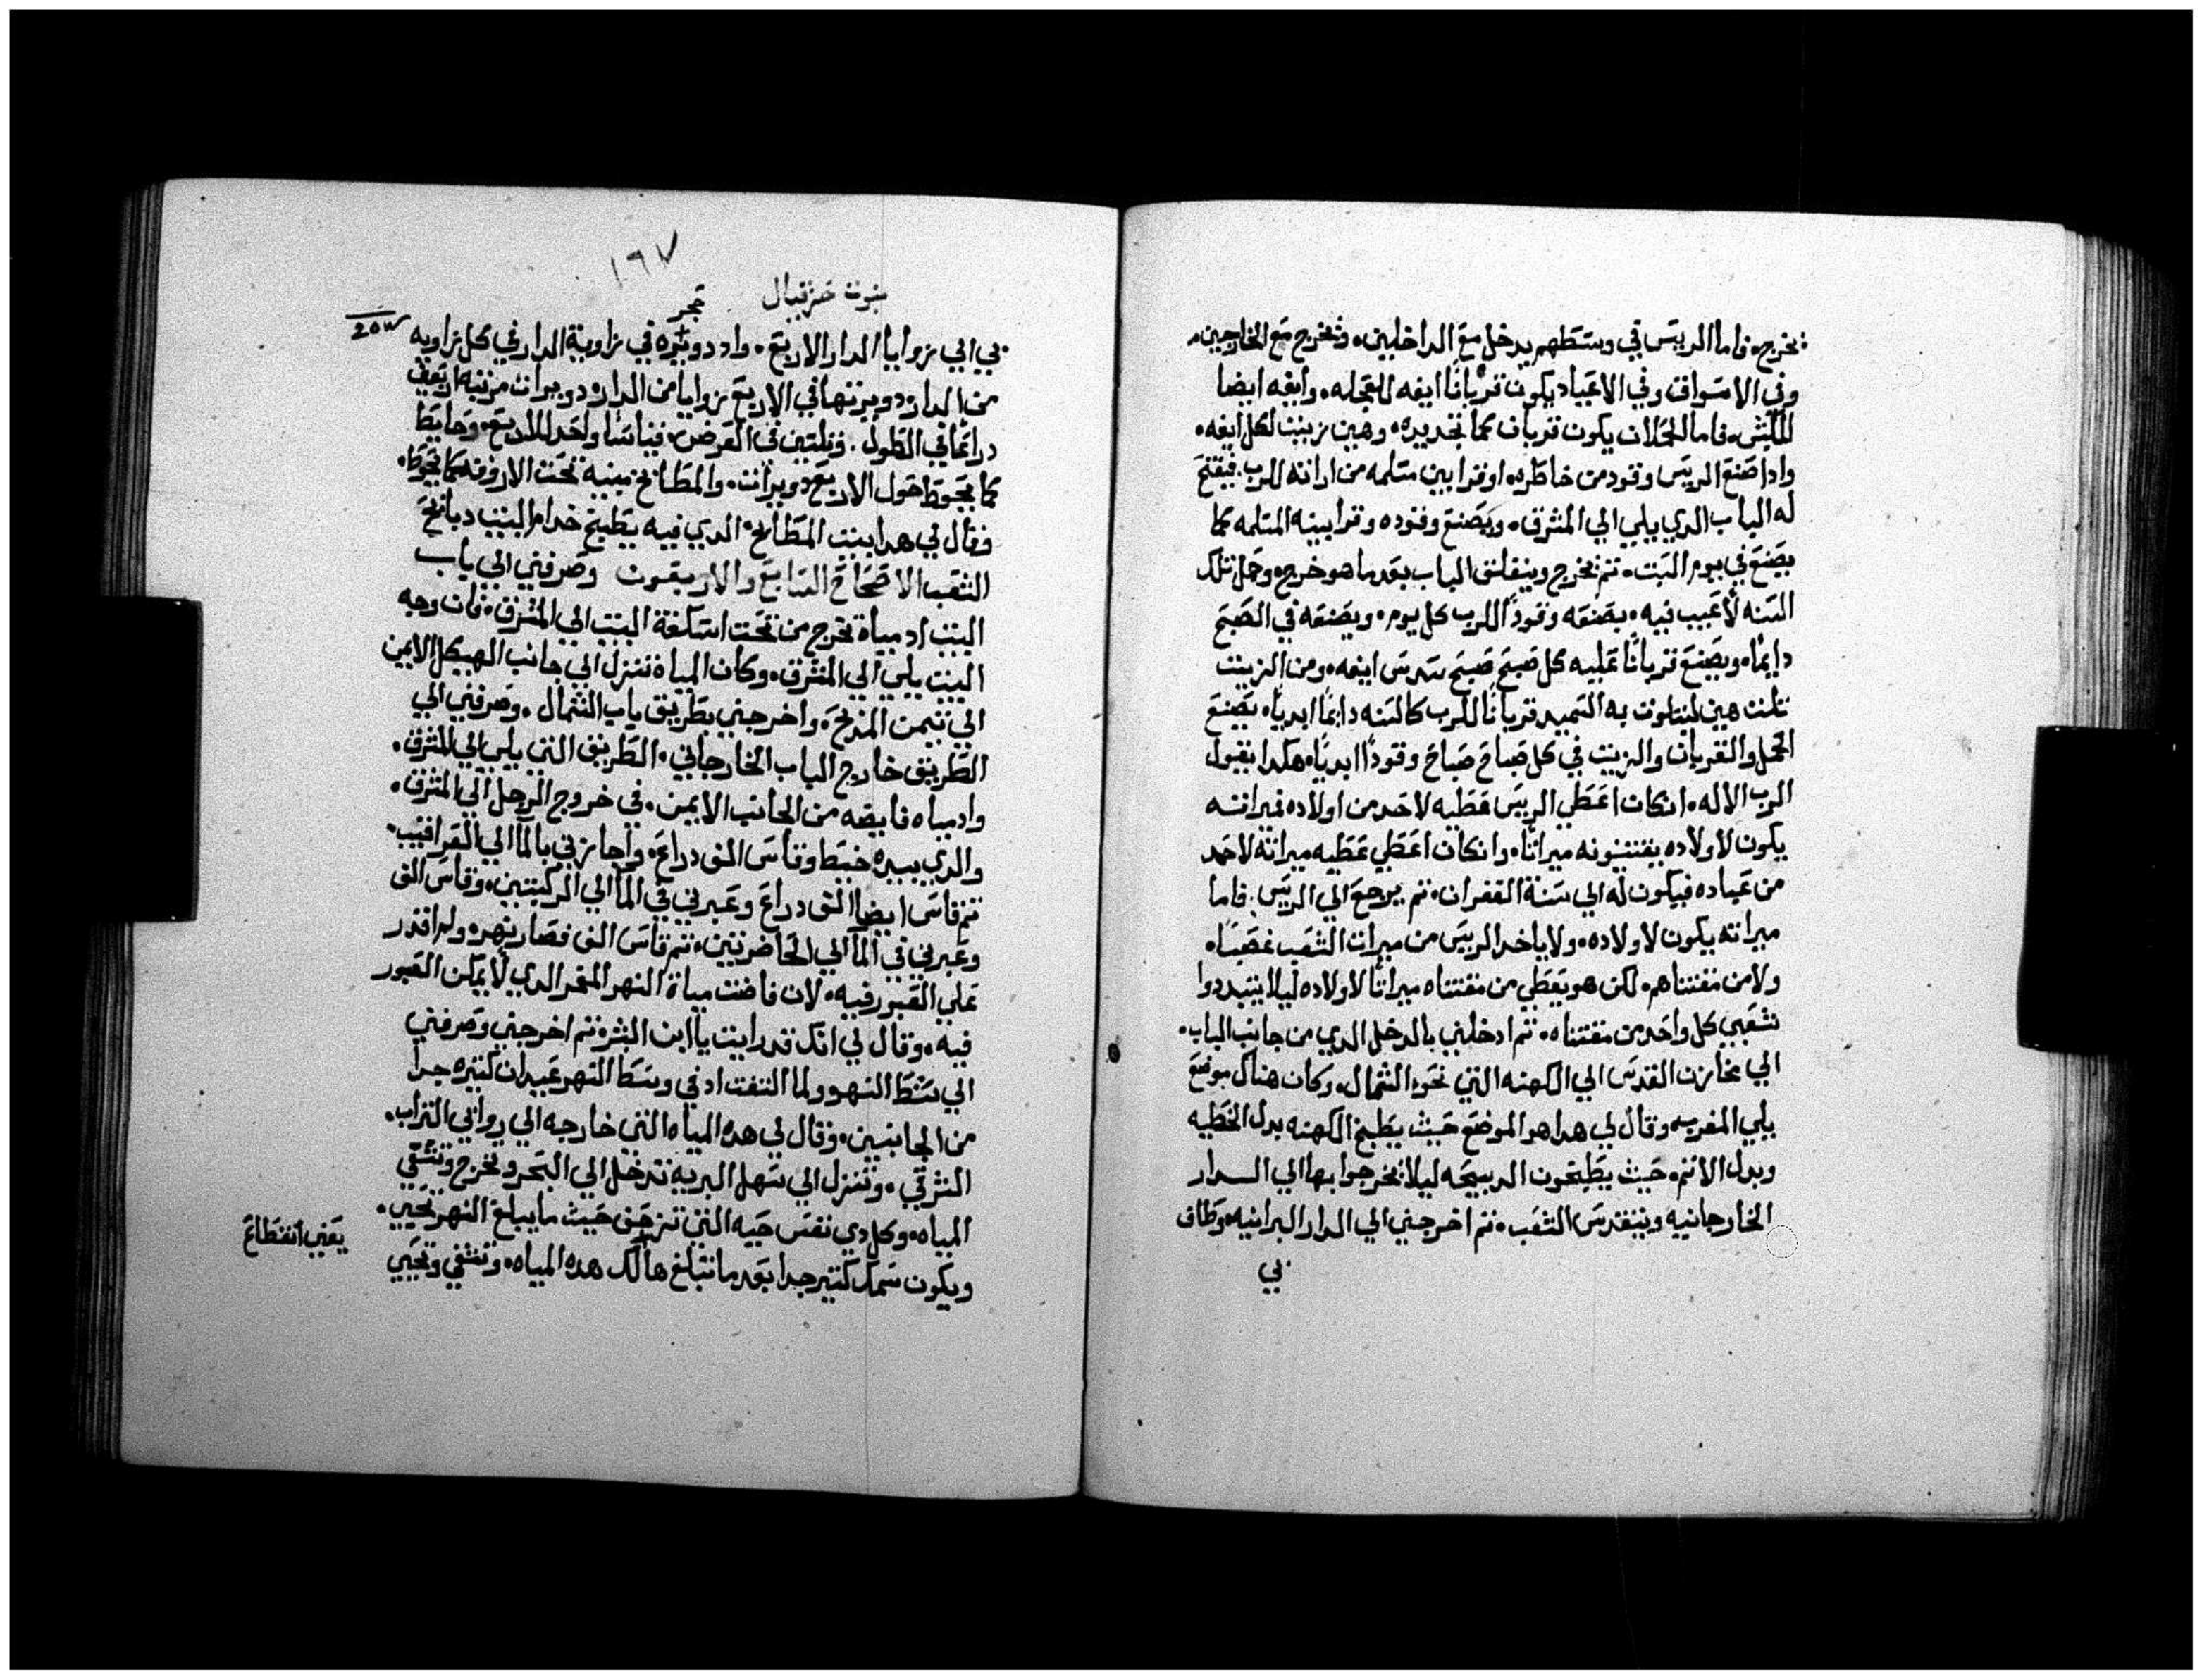 يخرج. فاما الرييَس في وسَطهم يدخل معَ الداخلين. ويخرج معَ الخارجين.
وفي الاسَواق وفي الاعَياد يكون قربانًا ايفه للعَجله. وايفه ايضا
للكبش. فاما الحملان يكون قربان كما تجد يده. وهين زيت لكل ايفه.
وادا صَنعَ الرييَس وقود من خاطره او قرابين مسَلمه من ارادته للرب. فيفتحَ
له الباب الدي يلي الي المشرق. ويَصنعَ وقوده وقرابينه المسَلمه كما
يصَنعَ في يوم السَبت. تم يخرج وينغلق الباب بعَد ما هو خرج. وحمل تلك
السَنه لا عَيب فيه. يصَنعَه وقودًا للرب كل يوم. ويصَنعَه في الصَبحَ
دايمًا. ويصَنعَ قربانًا عَليه كل صَبحَ صَبحَ سَدسَ ايفه. ومن الزيت
تلت هين لتتلوت به السَميد قربانًا للرب كالسَنه دايمًا ابديًا. يصَنعَ
الحمل والقربان والزيت في كل صَباحَ صَباحَ وقودًا ابديًا. هكدا يقول
الرب الاله. ان كان اعَطي الرييَس عَطيه لاحَد من اولاده فميراته
يكون لاولاده يقتنونه ميراتًا. وان كان اعَطي عَطيه ميراته لاحَد
من عَباده فيكون له الي سَنة الغفران. تم يرجعَ الي الرييَس. فاما
ميراته يكون لاولاده. ولا ياخد الرييَس من ميرات الشعَب غصَبًا.
ولا من مقتناهم. لكن هو يعَطي من مقتناه ميراتًا لاولاده ليلا يتبددوا
شعَبي كل واحَد من مقتناه. تم ادخلني بالدخل الدي من جانب الباب.
الي مخازن القدسَ الي الكهنه التي نحَو الشمال. وكان هناك موضعَ
يلي المغرب. وقال لي هدا هو الموضعَ حَيث يطبخ الكهنه بدل الخطيه
وبدل الاتم. حَيث يطبخون الدبيحَه ليلا يخرجوا بها الي الدار
الخارجانيه ويتقدسَ الشعَب. تم اخرجني الي الدار البرانيه. وطاف
بي
١٦٧
نبوت حزقيال
حجر
253
بي الي زوايا الدار الاربعَ. وادا دويره في زاوية الدار في كل زاويه
من الدار. دويرتها في الاربعَ زوايا من الدار. دويرات مرتبه اربعَين
دراعًا في الطول. وتلتين في العَرض. قياسًا واحَدا للاربعَ. وحايط
كما يحَوط حَول الاربعَ دويرات. والمطابخ مبنيه تحَت الاروقه كما يحَوط.
وقال لي هدا بيت المطابخ الدي فيه يطبخ خدام البيت دبايحَ
الشعَب الاصَحَاحَ السَابعَ والاربعَون وصَرفني الي باب
البيت اد مياة تخرج من تحَت اسَكفة البيت الي المشرق. فان وجه
البيت يلي الي المشرق. وكان المياة تنزل الي جانب الهيكل الايمن
الي تيمن المدبحَ. واخرجني بطريق باب الشمال. وصَرفني الي
الطريق خارج الباب الخارجاني. الطريق التي يلي الي المشرق.
واد مياه فايضه من الجانب الايمن. في خروج الرجل الي المشرق.
والدي بيده خيط وقاسَ الف دراعَ. واجازني بالمآ الي العَراقيب.
تم قاسَ ايضا الف دراعَ وعَبرني في المآ الي الركبتين. وقاسَ الف
وعَبرني في المآ الي الحَاضرتين. تم قاسَ الف فصَار نهر. ولم اقدر
عَلي العَبور فيه. لان فاضت مياة النهر المقعر الدي لا يمكن العَبور
فيه. وقال لي انك قد رايت يا ابن البشر. تم اخرجني وصَرفني
الي شط النهر ولما التفت اد في وسَط النهر عَيدان كتيره جدا
من الجانبين. وقال لي هده المياه التي خارجه الي روابي التراب.
الشرقي. وتنزل الي سَهل البريه تدخل الي البحَر وتخرج وتشفي
المياه. وكل دي نفسَ حَيه التي تزحَف حَيث ما يبلغ النهر تحَيي.
ويكون سَمك كتير جدا بعَد ما تبلغ هنالك هده المياه. وتشفي وتحَيي
يعَني انقطاعَ